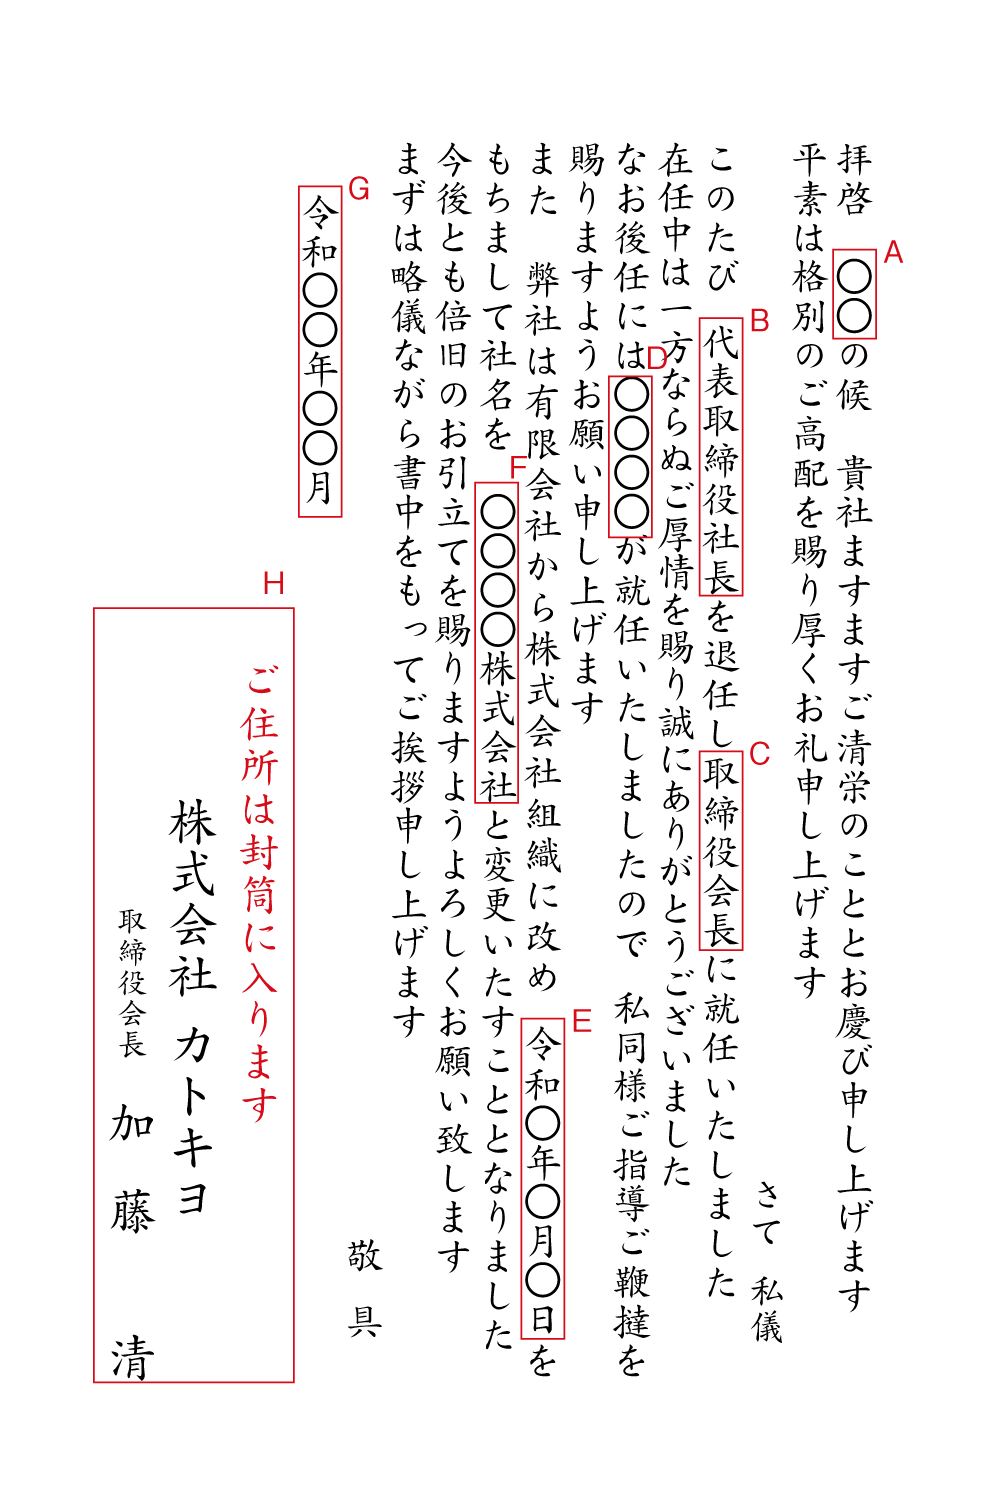 拝啓　〇〇の候　貴社ますますご清栄のこととお慶び申し上げます
A
平素は格別のご高配を賜り厚くお礼申し上げます
さて　私儀
このたび　代表取締役社長を退任し取締役会長に就任いたしました
B
C
在任中は一方ならぬご厚情を賜り誠にありがとうございました
なお後任には〇〇〇〇が就任いたしましたので　私同様ご指導ご鞭撻を
D
賜りますようお願い申し上げます
また　弊社は有限会社から株式会社組織に改め　令和〇年〇月〇日を
E
もちまして社名を　〇〇〇〇株式会社と変更いたすこととなりました
F
今後とも倍旧のお引立てを賜りますようよろしくお願い致します
まずは略儀ながら書中をもってご挨拶申し上げます
敬具
令和〇〇年〇〇月
G
H
ご住所は封筒に入ります
株式会社 カトキヨ
取締役会長　加藤　清